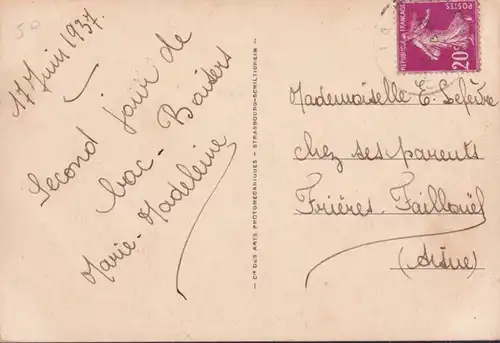 50
17 Juin 1937.
Second jour de
bac - Baisers
Marie-Madeleine
Cie DES ARTS PHOTOMECANIQUES - STRASBOURG-SCHILTIGHEIM
POSTES
REPUBLIQUE FRANÇAISE
20c
Mademoiselle E. Lefèvre
chez ses parents
Frières. Faillouël
(Aisne)